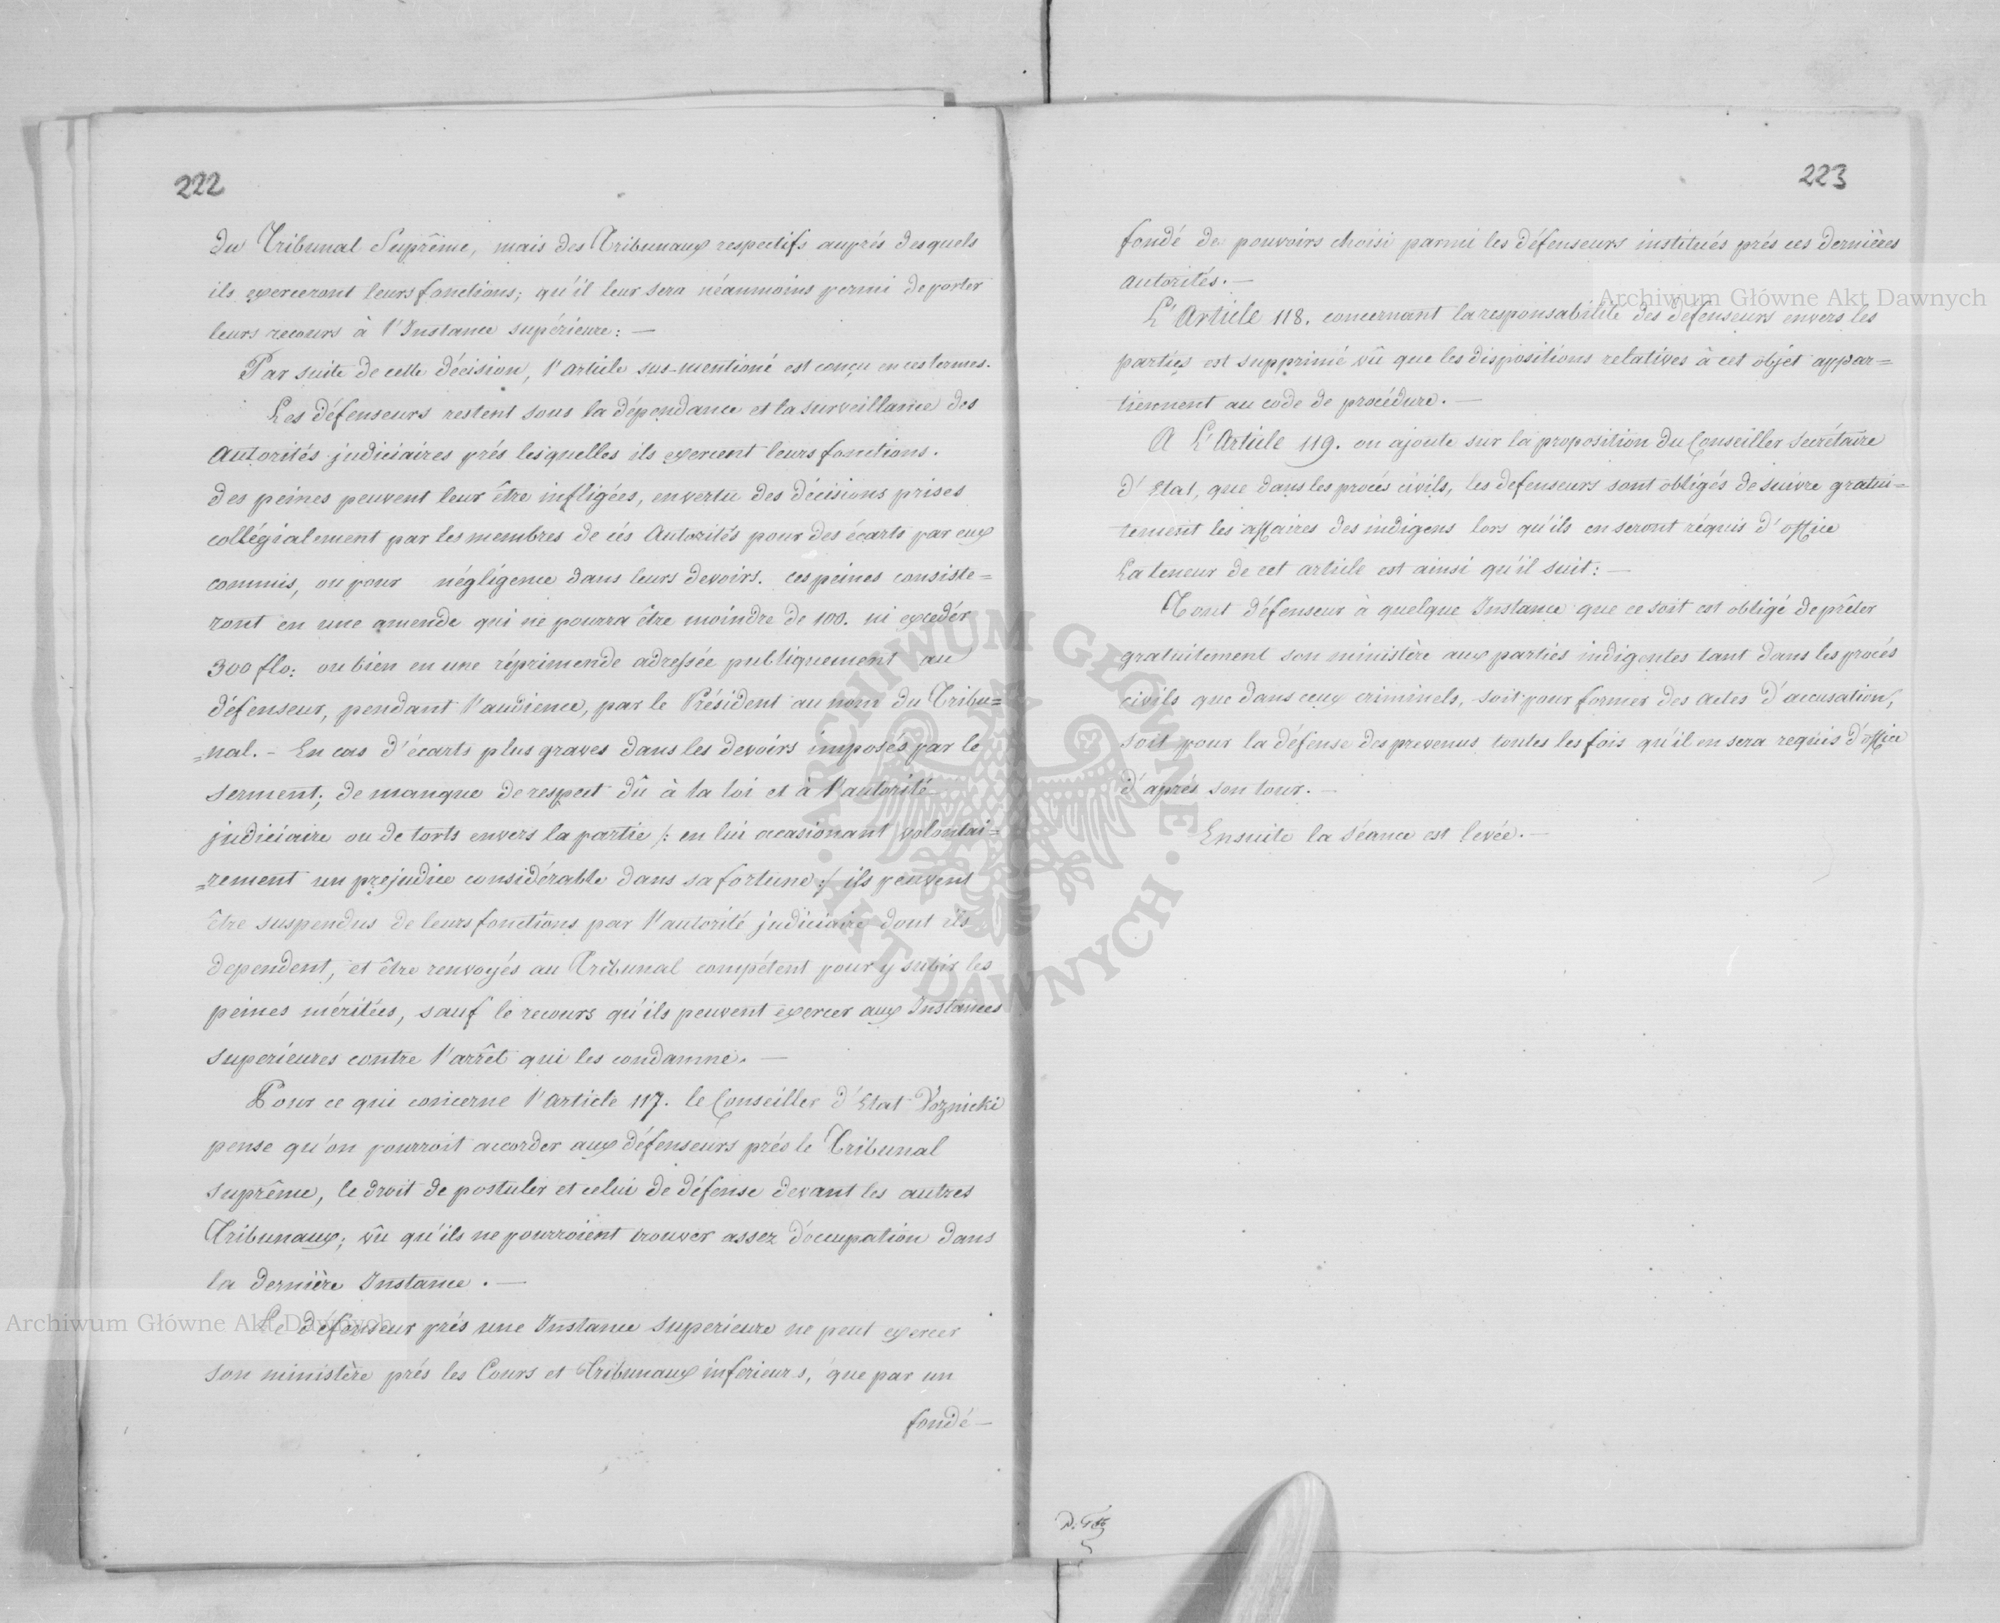 222
du Tribunal Suprême, mais des Tribunaux respectifs auprés desquels
ils exerceront leurs fonctions; qu'il leur sera néaumoins permi de porter
leurs recours à l'Instance supérieure: —
Par suite de cette décision, l'article sus-mentioné est conçu en ces termes.
Les défenseurs restent sous la dépendance et la surveillance des
Autorités judiciaires prés lesquelles ils exercent leurs fonctions.
des peines peuvent leur être infligées, en vertu des décisions prises
collégialement par les membres de cés Autorités pour des écarts par eux
commis, ou pour négligence dans leurs devoirs. ces peines consiste=
ront en une amende qui ne pourra être moindre de 100. ni excedér
300 flo: ou bien en une réprimende adressée publiquement au
défenseur, pendant l'audience, par le Président au nom du Tribu=
=nal. - En cas d'écarts plus graves dans les devoirs imposés par le
serment; de manque de respect dû à la loi et à l'autorité
judiciaire ou de torts envers la partie /: en lui acasionant volontai=
=rement un prejudice considérable dans sa fortune :/ ils peuvent
être suspendus de leurs fonctions par l'autorité judiciaire dont ils
dependent, et être renvoyés au Tribunal compétent pour y subir les
peines méritées, sauf le recours qu'ils peuvent exercer aux Instances
superieures contre l'arrêt qui les condamne. —
Pour ce qui concerne l'article 117. le Conseiller d'Etat Voznicki
pense qu'on pourroit accorder aux défenseurs prés le Tribunal
suprême, le droit de postuler et celui de défense devant les autres
Tribunaux; vû qu'ils ne pourroient trouver assez d'occupation dans
la dernière Instance. —
Le défenseur prés une Instance superieure ne peut exercer
son ministère prés les Cours et Tribunaux inferieurs, que par un
fondé —
223
fondé de pouvoirs choisi parmi les défenseurs institués prés ces dernières
autorités. —
L'Article 118. concernant la responsabilité des défenseurs envers les
parties est supprimé vû que les dispositions relatives à cet objet appar=
tiennent au code de procédure. —
A L'Article 119. on ajoute sur la proposition du Conseiller secrétaire
d'Etat, que dans les procés civils, les defenseurs sont obligés de suivre gratui=
tement les affaires des indigens lors qu'ils en seront réquis d'office
La teneur de cet article est ainsi qu'il suit: —
Tout défenseur à quelque Instance que ce soit est obligé de prêter
gratuitement son ministère aux parties indigentes tant dans les procés
civils que dans ceux criminels, soit pour former des actes d'accusation,
soit pour la défense des prevenus toutes les fois qu'il en sera requis d'office
d'aprés son tour. —
Ensuite la Séance est levée. —
Archiwum Główne Akt Dawnych
Archiwum Główne Akt Dawnych
ARCHIWUM GŁÓWNE AKT DAWNYCH